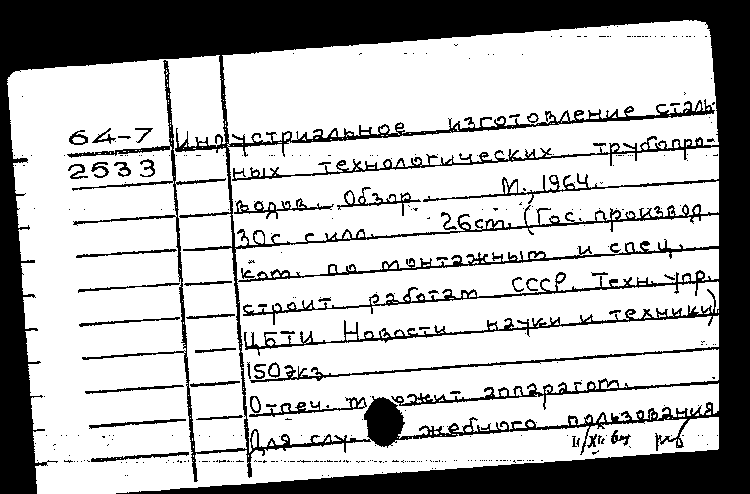 64-7 Индустриальное изготовление сталь
2533 ных технологических трубопро-
водов. Обзор. М., 1964.
30с. с илл. 26см. (Гос. производ.
ком. по монтажным и спец.
строит. работам СССР. Техн. упр.
ЦБТИ. Новости науки и техники)
150экз.
Отпеч. множит. аппаратом.
Для служебного пользования